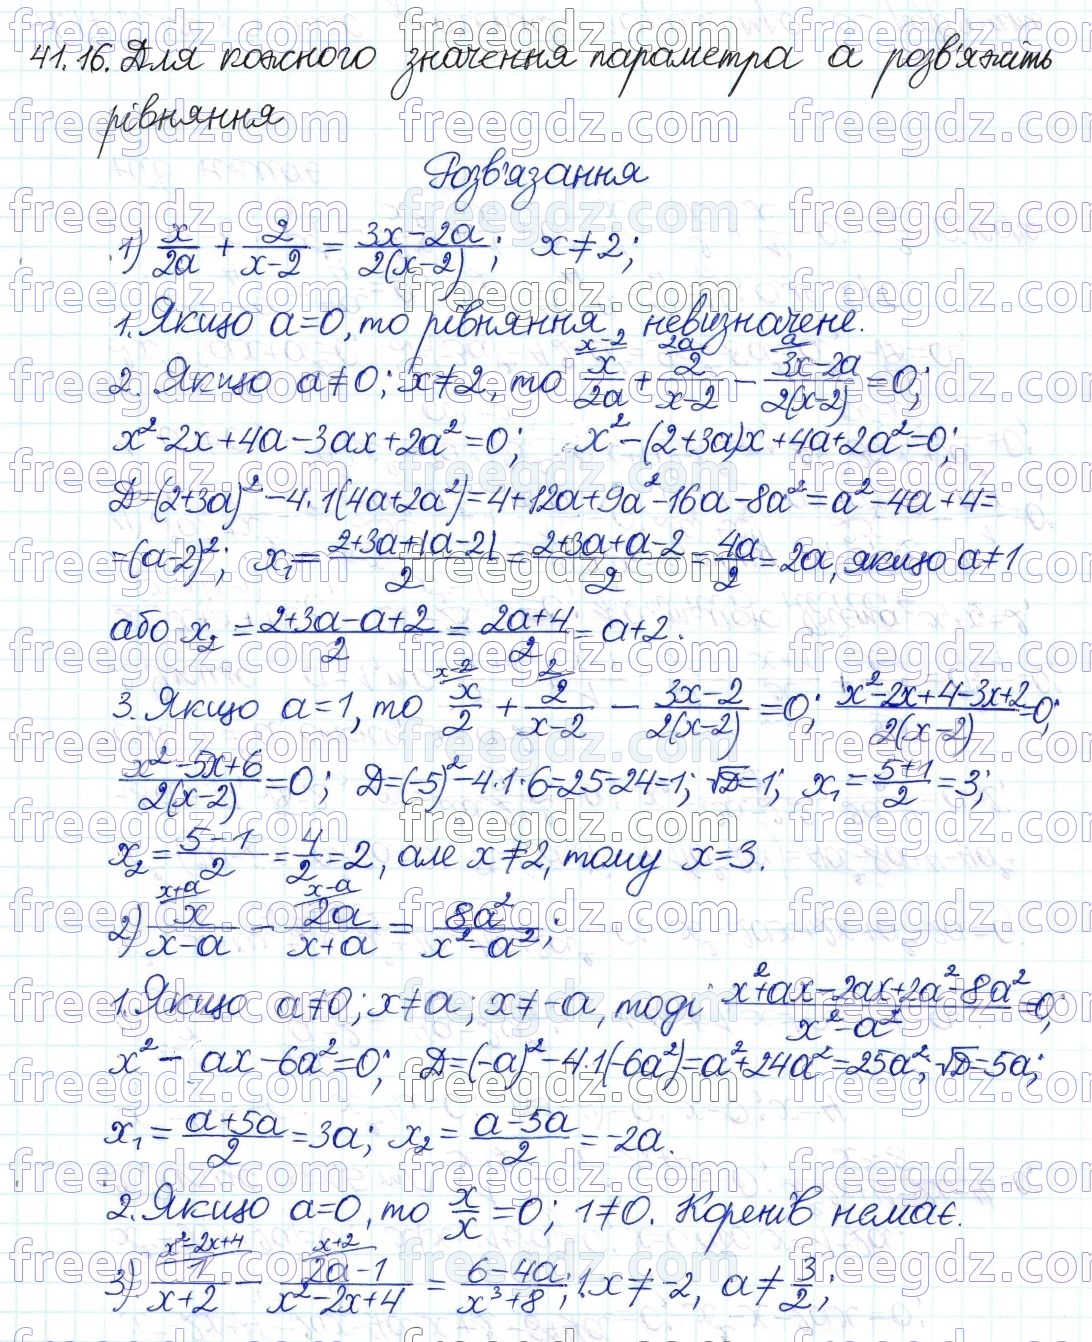 41.16. Для кожного значення параметра а розв'яжіть
рівняння
Розв'язання
1) x/2a + 2/(x-2) = (3x-2a)/(2(x-2)); x≠2;
1. Якщо a=0, то рівняння невизначене.
2. Якщо a≠0; x≠2, то (x-2) x/2a + (2a) 2/(x-2) - (a) (3x-2a)/(2(x-2)) = 0;
x²-2x+4a-3ax+2a²=0; x²-(2+3a)x+4a+2a²=0;
D=(2+3a)²-4·1(4a+2a²)=4+12a+9a²-16a-8a²=a²-4a+4=
=(a-2)²; x₁=(2+3a+|a-2|)/2=(2+3a+a-2)/2=4a/2=2a, якщо a≠1
або x₂=(2+3a-a+2)/2=(2a+4)/2=a+2.
3. Якщо a=1, то (x-2) x/2 + (2) 2/(x-2) - (3x-2)/(2(x-2)) =0; (x²-2x+4-3x+2)/(2(x-2))=0;
(x²-5x+6)/(2(x-2))=0; D=(-5)²-4·1·6=25-24=1; √D=1; x₁=(5+1)/2=3;
x₂=(5-1)/2=4/2=2, але x≠2, тому x=3.
2) (x+a) x/(x-a) - (x-a) 2a/(x+a) = 8a²/(x²-a²);
1. Якщо a≠0; x≠a; x≠-a, тоді (x²+ax-2ax+2a²-8a²)/(x²-a²)=0;
x²-ax-6a²=0; D=(-a)²-4·1(-6a²)=a²+24a²=25a²; √D=5a;
x₁=(a+5a)/2=3a; x₂=(a-5a)/2=-2a.
2. Якщо a=0, то x/x=0; 1≠0. Коренів немає.
3) (x²-2x+4) 1/(x+2) - (x+2) (2a-1)/(x²-2x+4) = (6-4a)/(x³+8); 1. x≠-2, a≠3/2;
freegdz.com